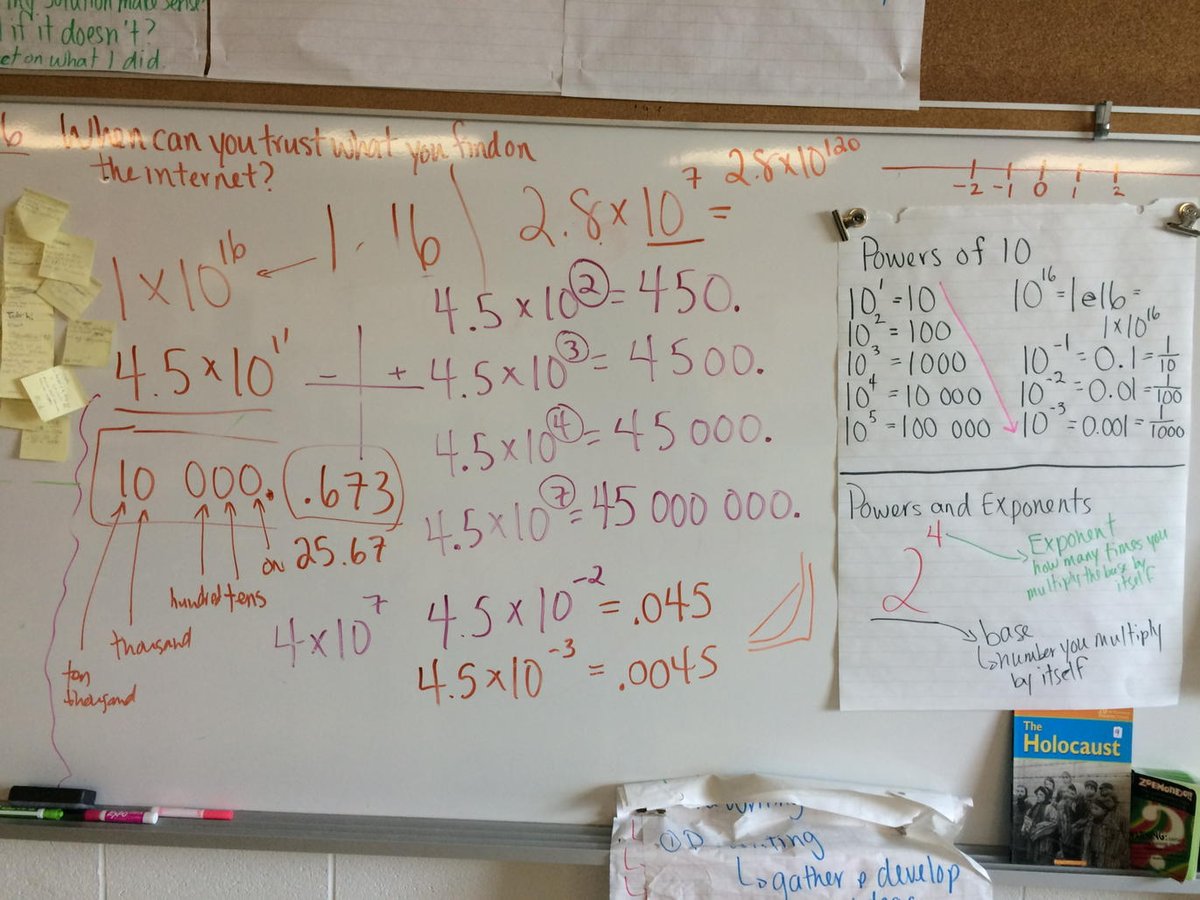 my solution make sense?
if it doesn't?
on what I did.
6 When can you trust what you find on
the internet?
2.8 x 10^120
-2 -1 0 1 2
1 x 10^16 ← 1. 16
2.8 x 10^7 =
4.5 x 10^11
- +
4.5 x 10^2 = 450.
4.5 x 10^3 = 4500.
4.5 x 10^4 = 45 000.
4.5 x 10^7 = 45 000 000.
10 000. .673
on 25.67
hundred tens
thousand
ten
thousand
4 x 10^7
4.5 x 10^-2 = .045
4.5 x 10^-3 = .0045
Powers of 10
10^1 = 10
10^2 = 100
10^3 = 1000
10^4 = 10 000
10^5 = 100 000
10^16 = 1e16 =
1 x 10^16
10^-1 = 0.1 = 1/10
10^-2 = 0.01 = 1/100
10^-3 = 0.001 = 1/1000
Powers and Exponents
2^4
Exponent
how many times you
multiply the base by
itself
base
↳number you multiply
by itself
The
Holocaust
EXPO
writing
① D
↳gather & develop